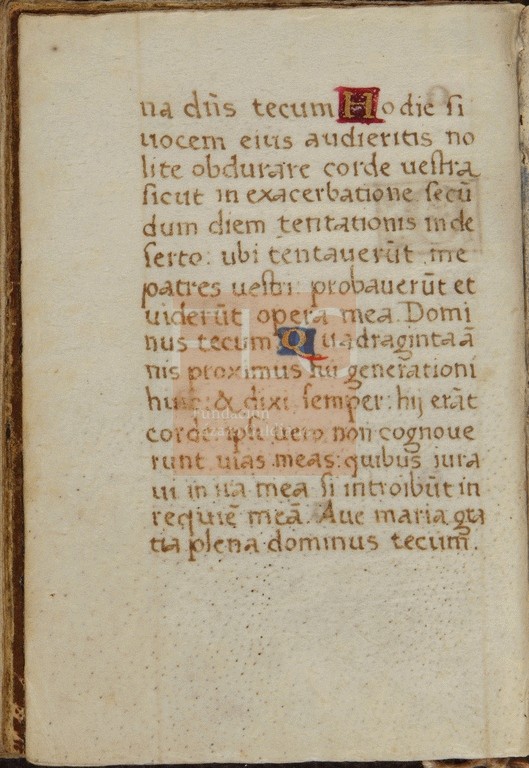 na dn̄s tecum Hodie si
uocem eius audieritis no
lite obdurare corde uestra
sicut in exacerbatione secū
dum diem tentationis in de
serto: ubi tentauerūt me
patres uestri: probauerūt et
uiderūt opera mea. Domi
nus tecum Quadraginta ā
nis proximus fui generationi
huic: & dixi semper: hij erāt
corde ipsi uero non cognoue
runt uias meas: quibus iura
ui in ira mea si introibūt in
requiē meā. Aue maria gra
tia plena dominus tecum.